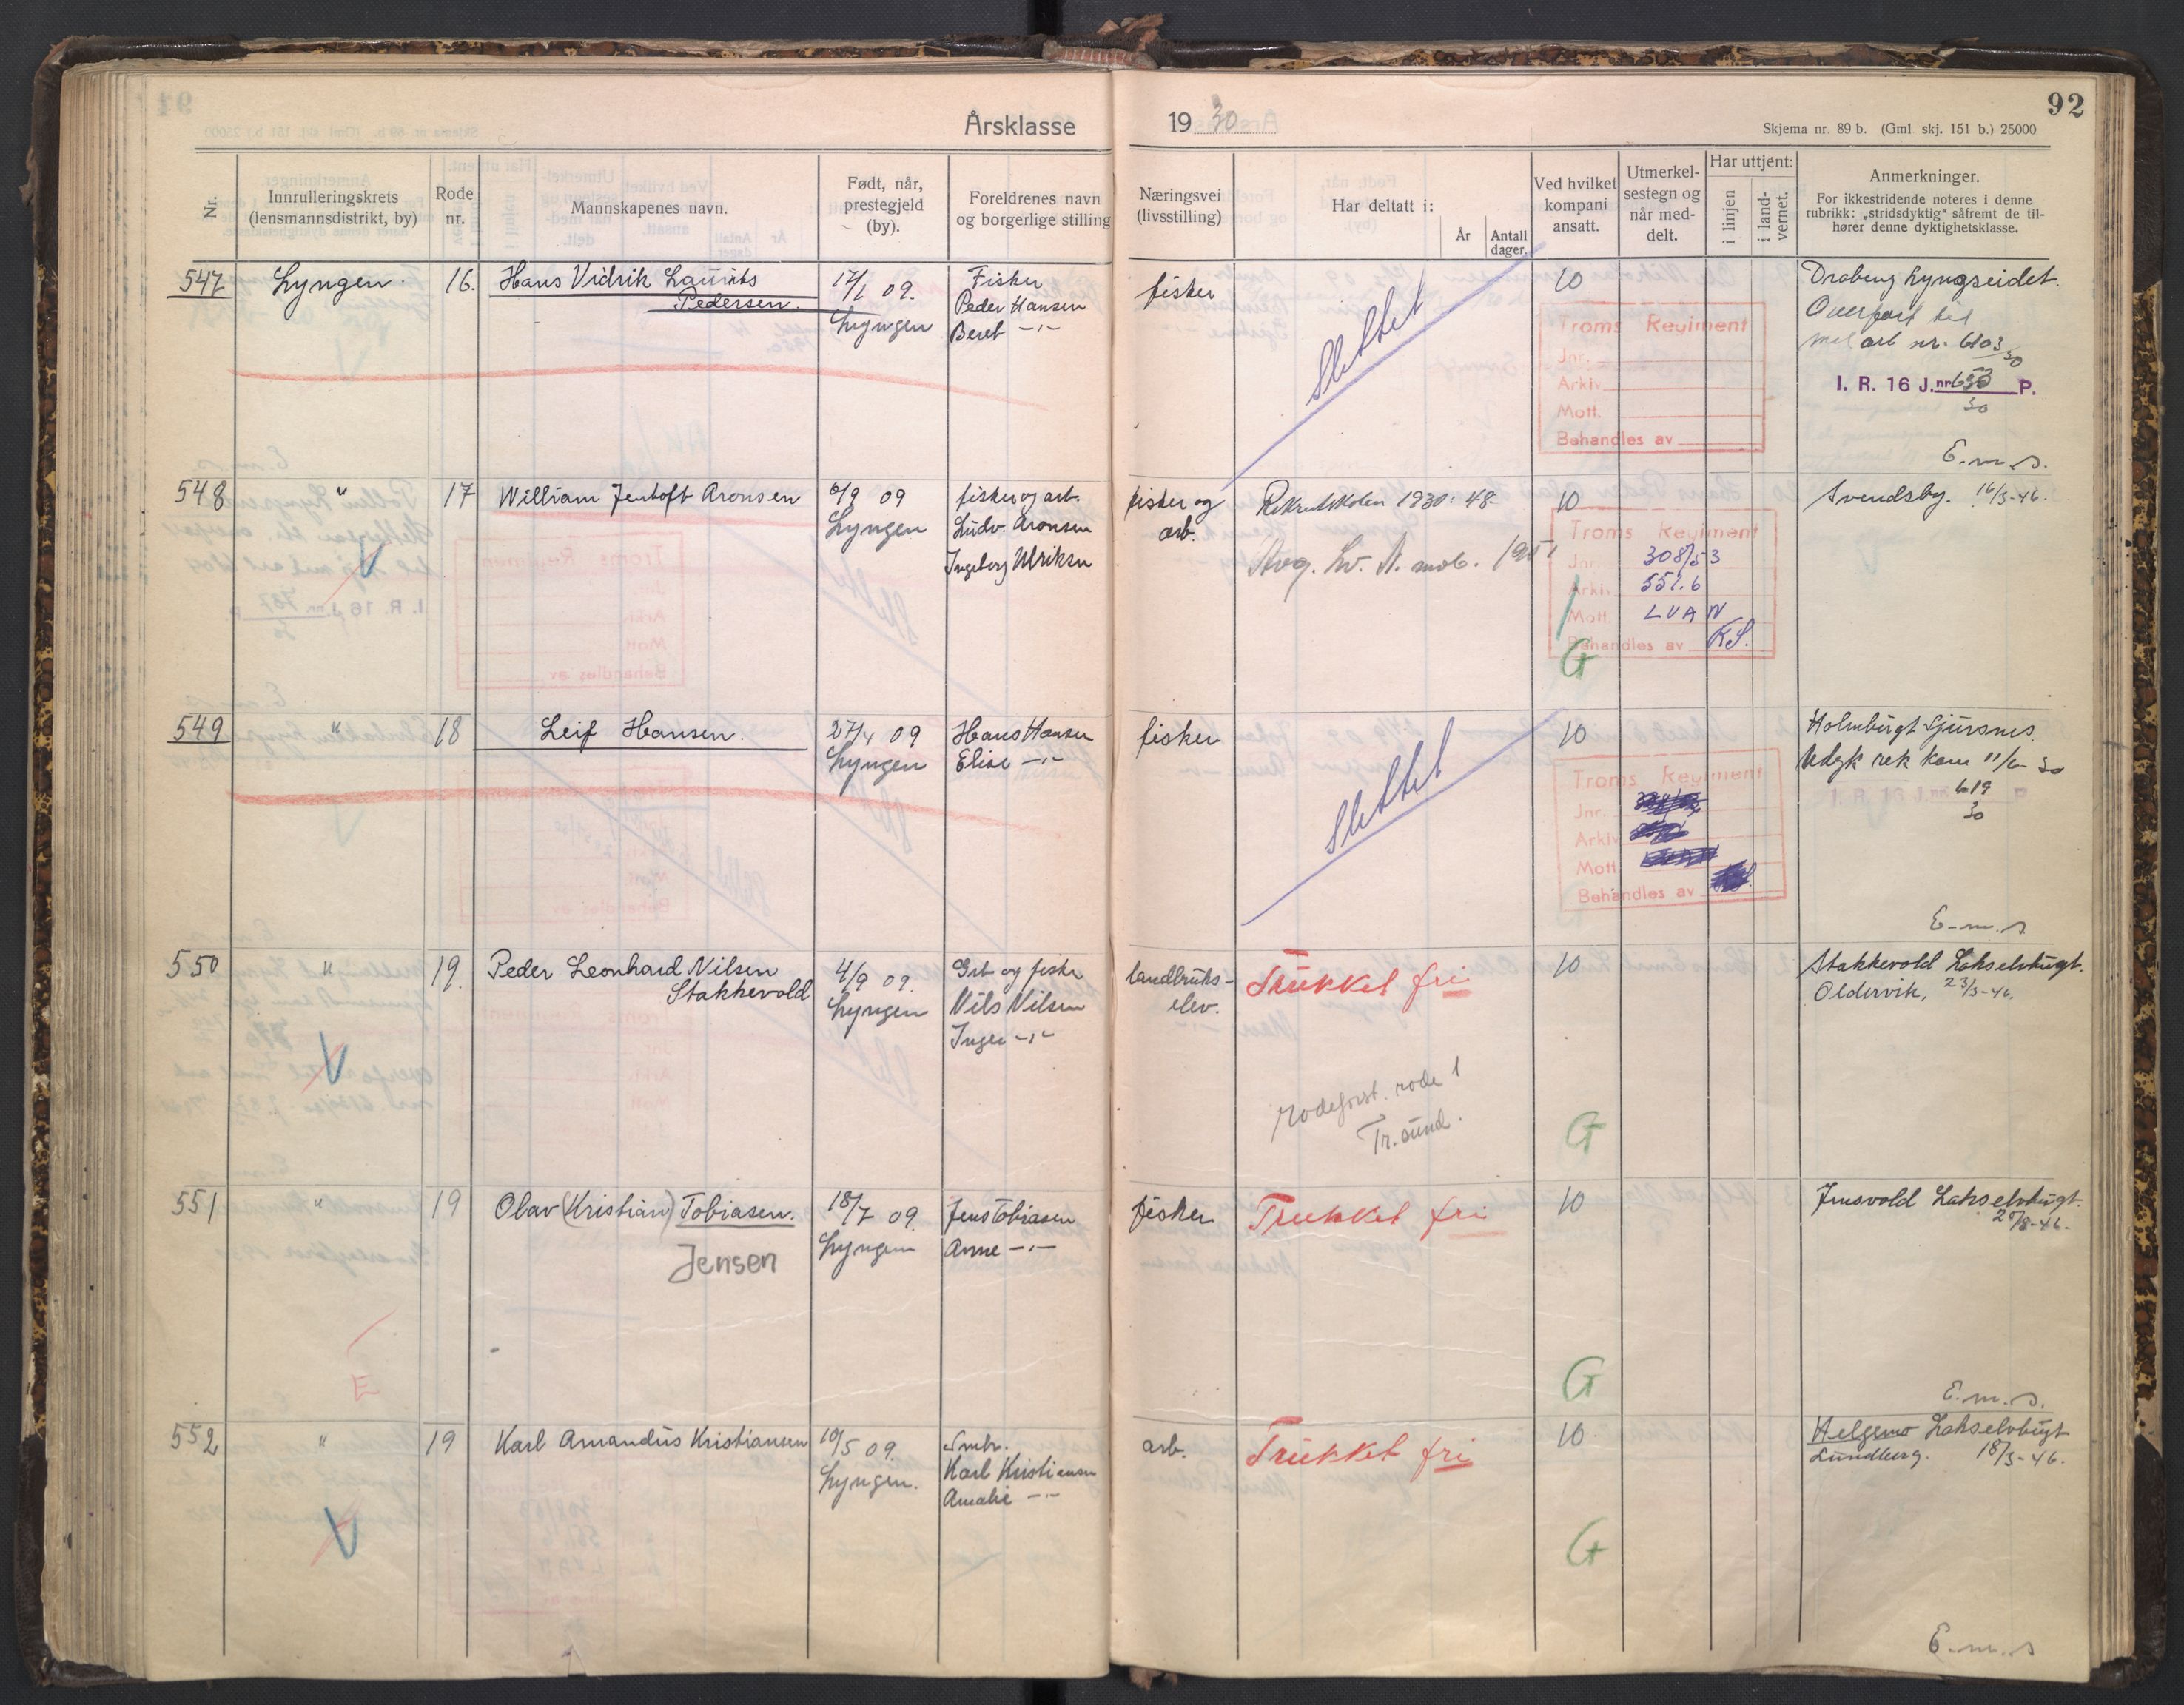 Årsklasse 19 30
92
Skjema nr. 89 b. (Gml skj. 151 b.) 25000
Nr.
Innrulleringskrets
(lensmannsdistrikt, by)
Rode
nr.
Mannskapenes navn.
Født, når,
prestegjeld
(by).
Foreldrenes navn
og borgerlige stilling
Næringsvei
(livsstilling)
Har deltatt i:
År
Antall
dager.
Ved hvilket
kompani
ansatt.
Utmerkel-
sestegn og
når med-
delt.
Har uttjent:
i linjen
i land-
vernet.
Anmerkninger.
For ikkestridende noteres i denne
rubrikk: „stridsdyktig" såfremt de til-
hører denne dyktighetsklasse.
547
Lyngen.
16.
Hans Vidrik Laurits
Pedersen.
17/1 09.
Lyngen
Fisker
Peder Hansen
Beret -"-
fisker
Slettet
10
Troms Regiment
Jnr.
Arkiv
Mott.
Behandles av
Lyngseidet.
Overført til
arb nr. 6103/30
I. R. 16 J.nr. P.
30
E.m.s.
548
"
17
William Jentoft Aronsen
6/9 09
Lyngen
fisker og arb.
Ludv. Aronsen
Ingeborg Ulriksen
V
fisker og
arb.
Rekruttskolen 1930: 48.
Avg. Lv. A. mob. 1951
10
Troms Regiment
Jnr. 308/53
Arkiv. 551.6
Mott. LVAN
Behandles av KS.
G
Svendsby. 16/3-46.
549
"
18
Leif Hansen.
27/4 09
Lyngen
Hans Hansen
Elise -"-
fisker
Slettet
10
Troms Regiment
Jnr.
Arkiv
Mott.
Behandles av
Holmbugt Sjursnes.
Udyk rek kom 11/6 30
I. R. 16 J.nr. 619 P
30
E.m.s
550
"
19.
Peder Leonhard Nilsen
Stakkevold
4/9 09.
Lyngen
Grb og fisker
Nils Nilsen
Inger -"-
V
landbruks-
elev.
Trukket fri
rodeforst. rode 1
Tr.sund.
10
G
Stakkevold Lakselvbugt.
Oldervik, 23/3-46.
551
"
19
Olav (Kristian) Tobiasen.
Jensen
18/7 09.
Lyngen
Jens Tobiasen
Anne -"-
E
fisker
Trukket fri
10
G
Jensvold Lakselvbugt.
E.m.s.
552
"
19
Karl Amandus Kristiansen
10/5 09.
Lyngen.
Smbr.
Karl Kristiansen
Amalie -"-
V
arb.
Trukket fri
10
G
Helgemo Lakselvbugt
Lundberg. 18/3-46.
E.m.s